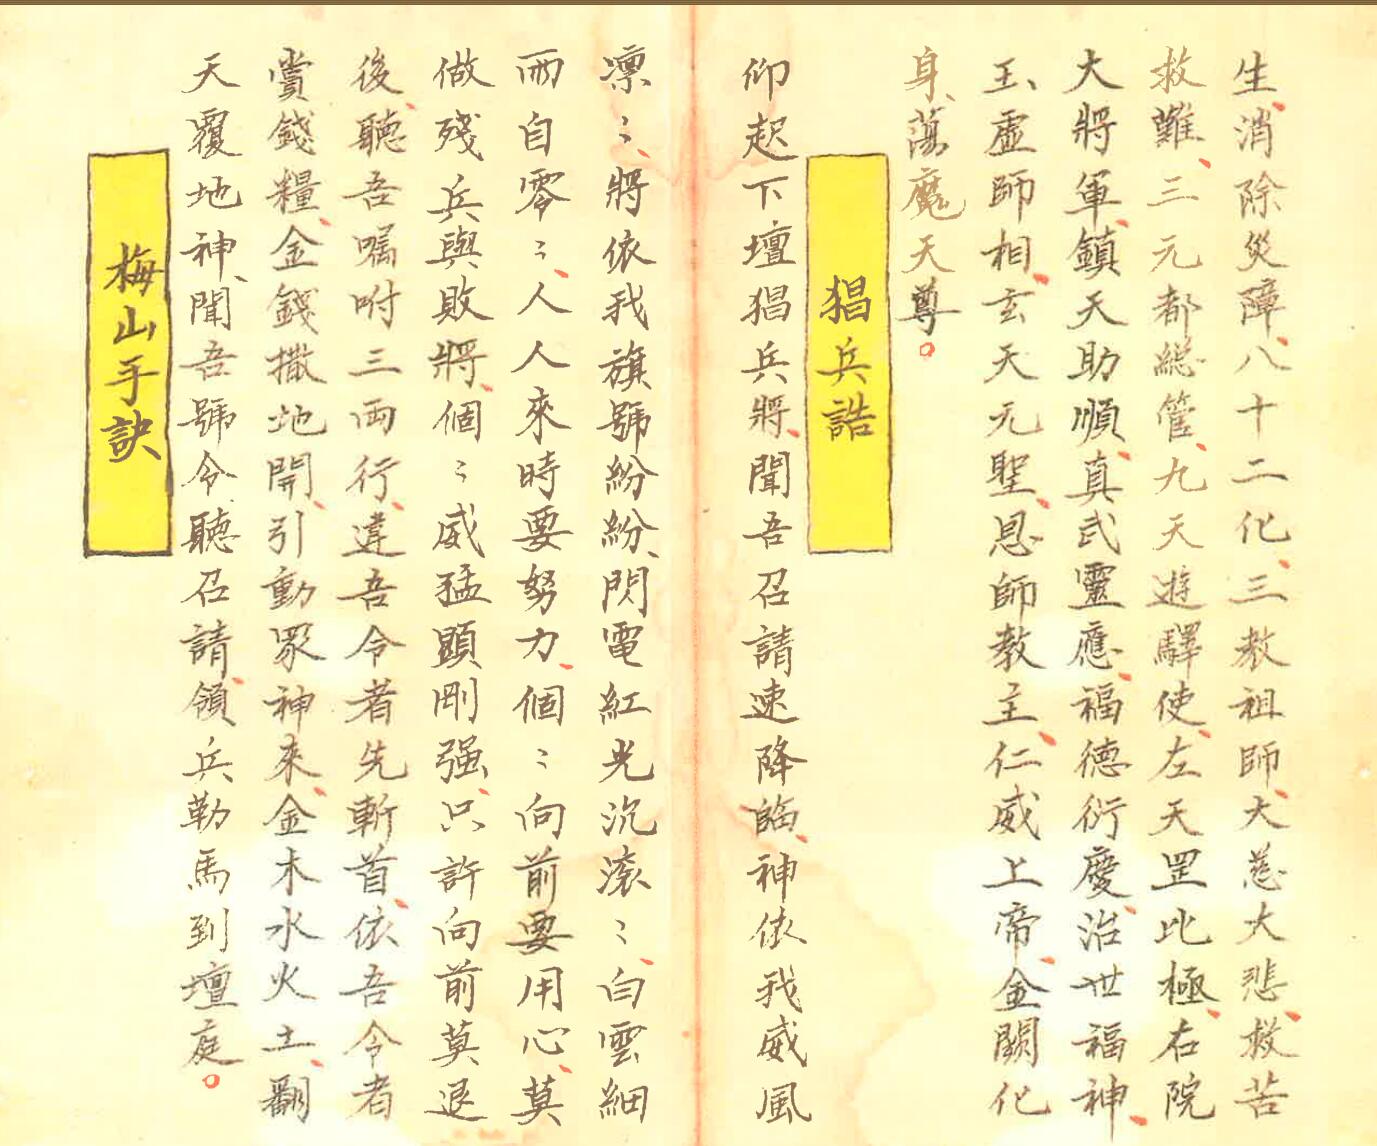 生、消除災障、八十二化、三教祖師、大慈大悲、救苦
救難、三元都總管、九天遊驛使、左天罡北極、右院
大將軍、鎮天助順、真武靈應、福德衍慶、治世福神、
玉虛師相、玄天元聖、恩師教主、仁威上帝、金闕化
身、蕩魔天尊。
猖兵誥
仰起下壇猖兵將、聞吾召請速降臨、神依我威風
凛〻、將依我旗號紛紛、閃電紅光沉滚〻、白雲細
雨自零〻、人人來時要努力、個〻向前要用心、莫
做殘兵與敗將、個〻威猛顕剛强、只許向前莫退
後、聽吾囑咐三兩行、違吾令者先斬首、依吾令者
賞錢糧、金錢撒地開、引動眾神來、金木水火土、翻
天覆地神、聞吾號令聽召請、領兵勒馬到壇庭。
梅山手訣